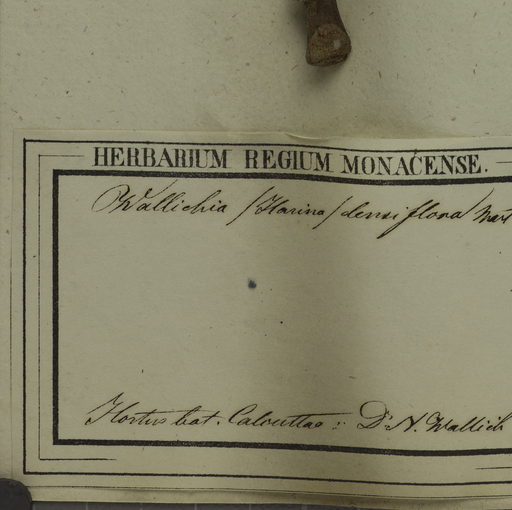 HERBARIUM REGIUM MONACENSE.
Wallichia /Harina/ densiflora Mart
Hortus bot. Calcuttae :: Dr N. Wallich